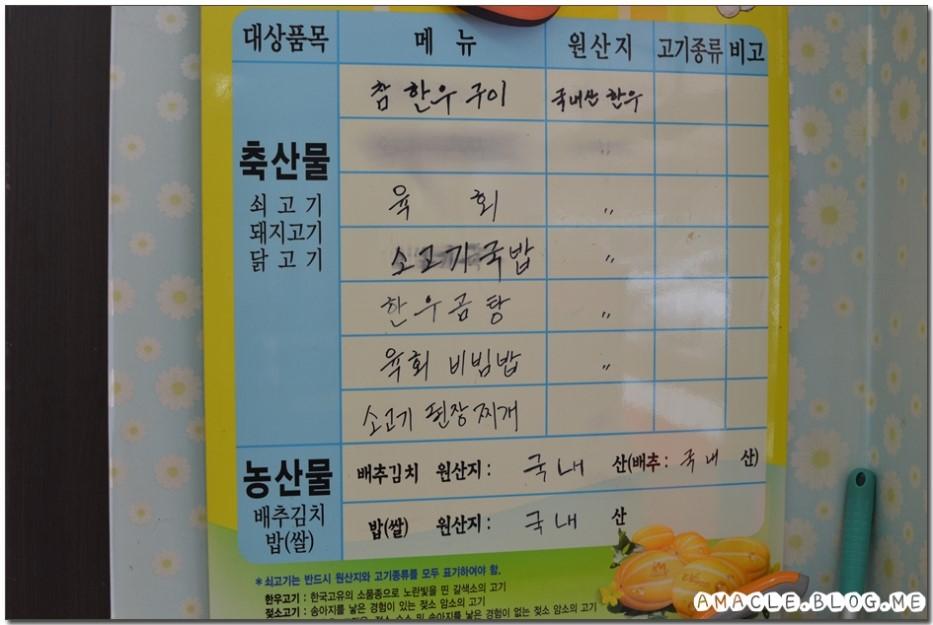 대상품목 메 뉴 원산지 고기종류 비고
참 한우 구이 국내산 한우
〃
축산물
쇠 고 기
돼지고기
닭 고 기
육 회 〃
소고기국밥 〃
한우곰탕 〃
육회 비빔밥 〃
소고기 된장찌개
농산물
배추김치
밥(쌀)
배추김치 원산지 : 국내 산(배추 : 국내 산)
밥(쌀) 원산지 : 국내 산
*쇠고기는 반드시 원산지와 고기종류를 모두 표기하여야 함.
한우고기 : 한국고유의 소품종으로 노란빛을 띤 갈색소의 고기
젖소고기 : 송아지를 낳은 경험이 있는 젖소 암소의 고기
송아지를 낳은 경험이 없는 젖소 암소의 고기
AMACLE.BLOG.ME